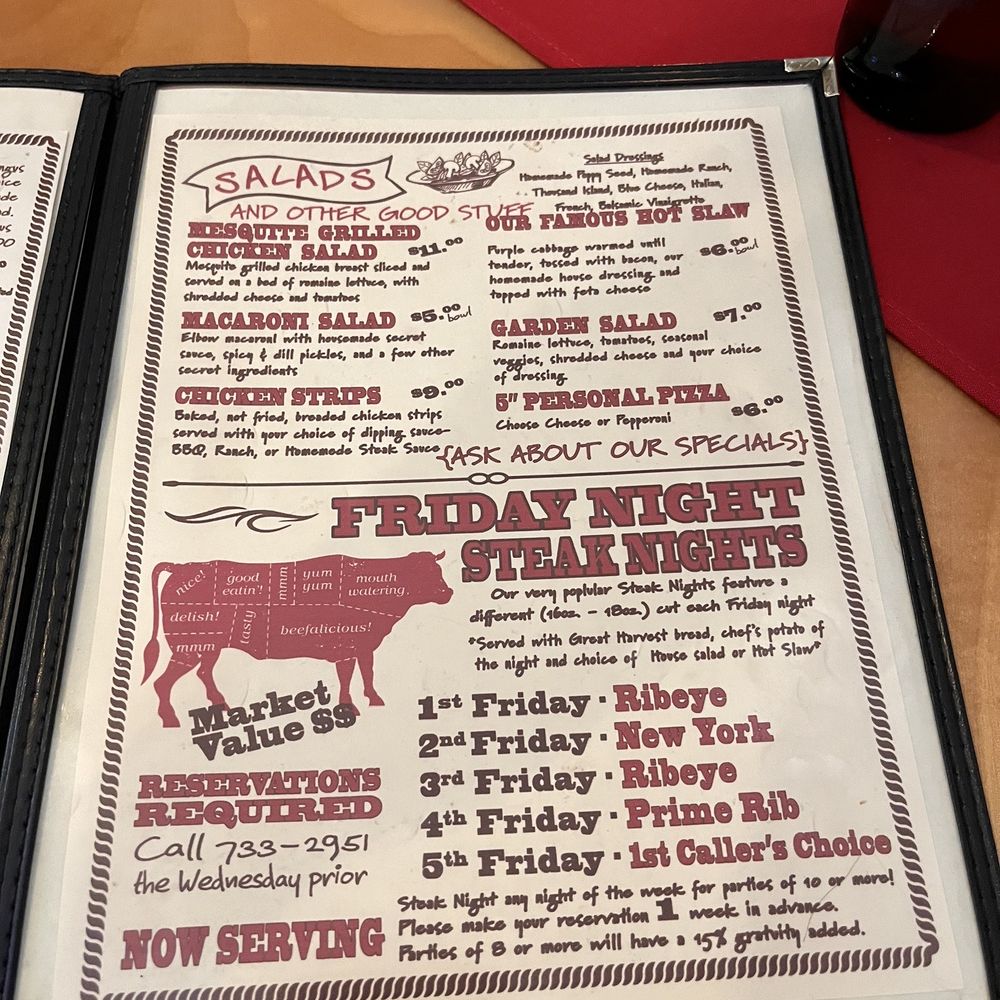 ngus
ice
de
d.
us
00
SALADS
AND OTHER GOOD STUFF
Salad Dressings
Homemade Poppy Seed, Homemade Ranch,
Thousand Island, Blue Cheese, Italian,
French, Balsamic Vinaigrette
MESQUITE GRILLED
CHICKEN SALAD $11.00
Mesquite grilled chicken breast sliced and
served on a bed of romaine lettuce, with
shredded cheese and tomatoes
MACARONI SALAD $5.00 bowl
Elbow macaroni with housemade secret
sauce, spicy & dill pickles, and a few other
secret ingredients
CHICKEN STRIPS $9.00
Baked, not fried, breaded chicken strips
served with your choice of dipping sauce-
BBQ, Ranch, or Homemade Steak Sauce
OUR FAMOUS HOT SLAW
Purple cabbage warmed until
tender, tossed with bacon, our
homemade house dressing and
topped with feta cheese
$6.00 bowl
GARDEN SALAD $7.00
Romaine lettuce, tomatoes, seasonal
veggies, shredded cheese and your choice
of dressing
5" PERSONAL PIZZA
Choose Cheese or Pepperoni $6.00
{ASK ABOUT OUR SPECIALS}
FRIDAY NIGHT
STEAK NIGHTS
Our very poplular Steak Nights feature a
different (16oz. - 18oz.) cut each Friday night
*Served with Great Harvest bread, chef's potato of
the night and choice of House salad or Hot Slaw*
nice!
good
eatin'!
mmm
yum
yum
mouth
watering.
delish!
tasty
beefalicious!
mmm
Market
Value $$
1st Friday · Ribeye
2nd Friday · New York
3rd Friday · Ribeye
4th Friday · Prime Rib
5th Friday · 1st Caller's Choice
RESERVATIONS
REQUIRED
Call 733-2951
the Wednesday prior
NOW SERVING
Steak Night any night of the week for parties of 10 or more!
Please make your reservation 1 week in advance.
Parties of 8 or more will have a 15% gratuity added.